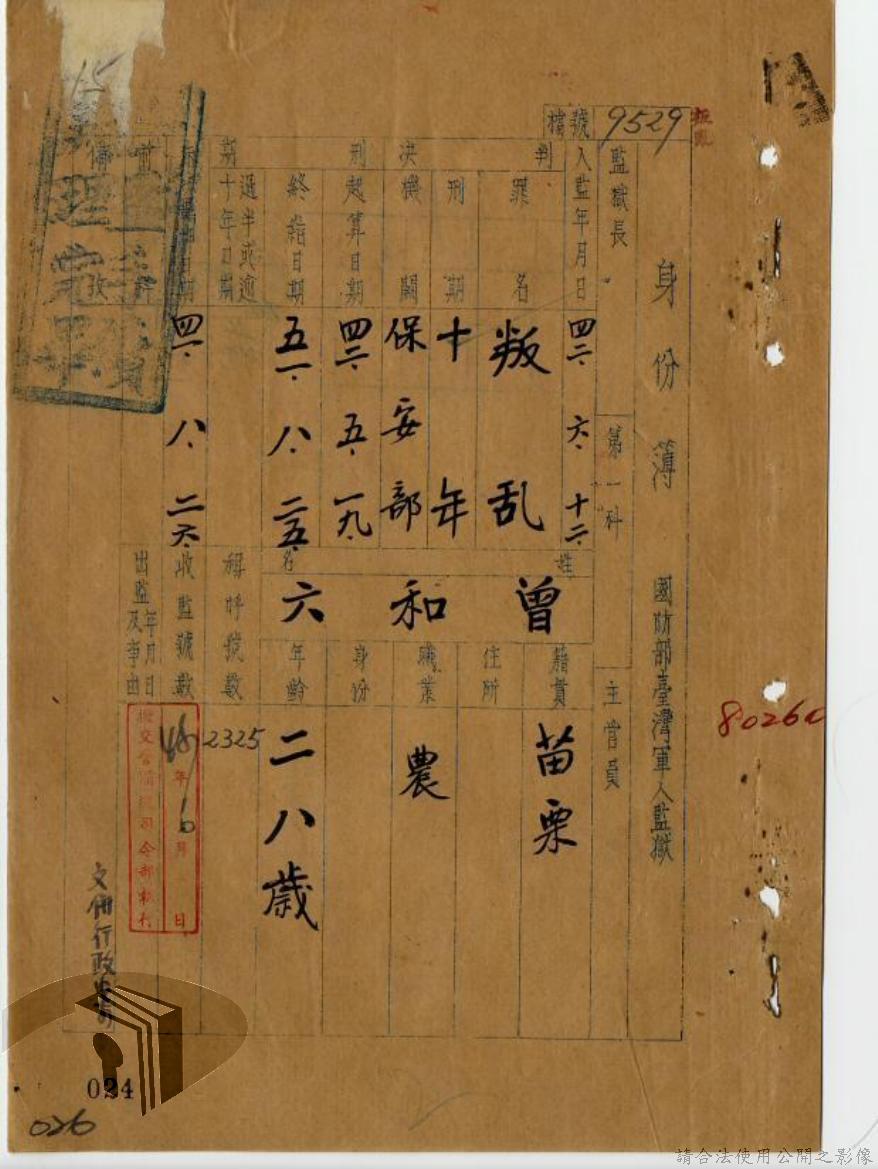 檔號 9529
身份簿 國防部臺灣軍人監獄
監獄長 第一科 主管員
入監年月日 四二.六.十二.
判決
罪名 叛乱
刑期 十年
機關 保安部
刑期
起算日期 四二.五.一九.
終結日期 五一.八.二五.
過半或逾十年日期
四一.八.二六.
姓名 曾和六
籍貫 苗栗
住所
職業 農
身份
年齡 二八歲
稱呼號數 2325
收監號數
出監年月日及事由
年 月 日
80260
024
026
請合法使用公開之影像